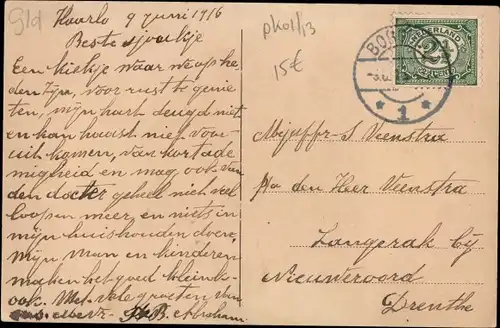 Gld
Haarlo 9 Juni 1916
pk01/13
15€
Beste sjoukje
Een kiekje waar we op he
den zijn, voor rust te genie
ten, mijn hart deugd niet
en kan haast niet voor
uit komen, van kortade
migheid en mag ook van
den docter geheel niet veel
loopen meer, en niets in
mijn huishouden doen,
mijn man en kinderen
maken het goed kleintje
ook. Met vele groeten van
B. Abraham
NEDERLAND
2½
BO
1
Mejuffr S Veenstra
p/a den Heer Veenstra
Langerak bij
Nieuweroord
Drenthe